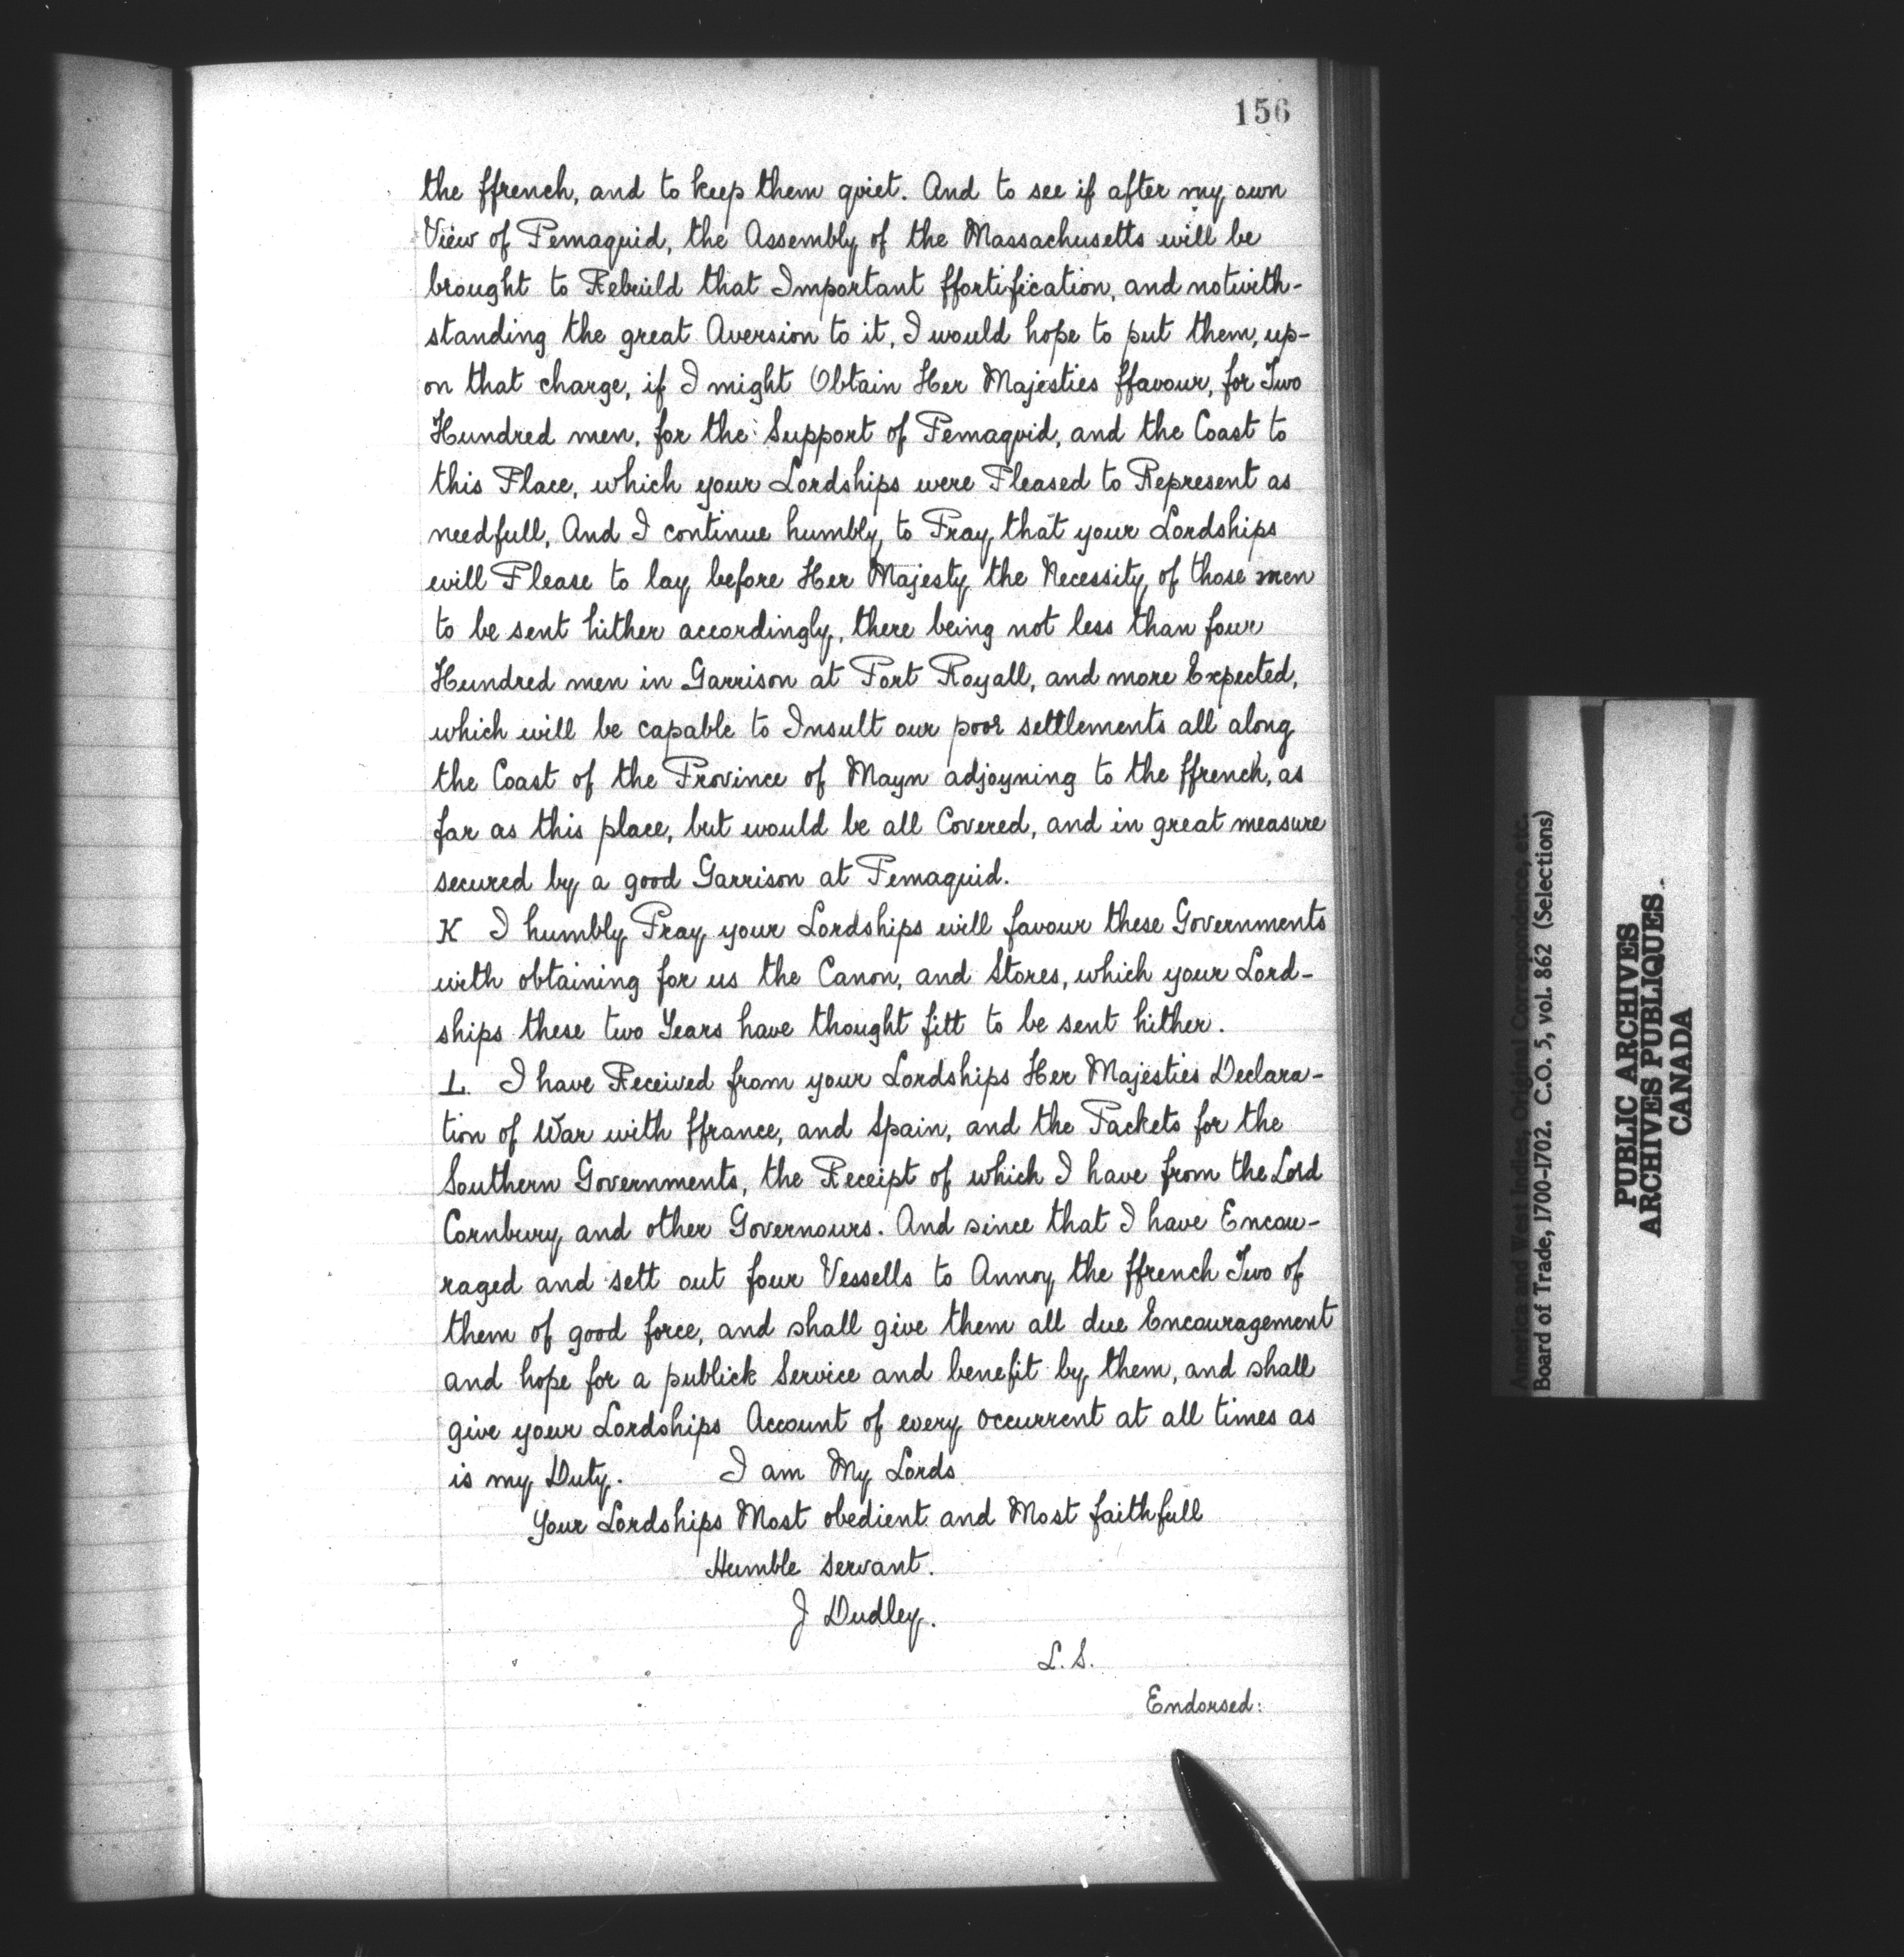 156
the ffrench, and to keep them quiet. And to see if after my own
View of Pemaquid, the Assembly of the Massachusetts will be
brought to Rebuild that Important ffortification, and notwith-
standing the great Aversion to it, I would hope to put them, up-
on that charge, if I might Obtain Her Majesties ffavour, for Two
Hundred men, for the Support of Pemaquid, and the Coast to
this Place, which your Lordships were Pleased to Represent as
needfull, And I continue humbly to Pray that your Lordships
will Please to lay before Her Majesty the Necessity of those men
to be sent hither accordingly, there being not less than four
Hundred men in Garrison at Port Royall, and more Expected,
which will be capable to Insult our poor settlements all along
the Coast of the Province of Mayn adjoyning to the ffrench, as
far as this place, but would be all Covered, and in great measure
secured by a good Garrison at Pemaquid.
K I humbly Pray your Lordships will favour these Governments
with obtaining for us the Canon, and Stores, which your Lord-
ships these two Years have thought fitt to be sent hither.
L. I have Received from your Lordships Her Majesties Declara-
tion of War with ffrance, and Spain, and the Packets for the
Southern Governments, the Receipt of which I have from the Lord
Cornbury and other Governours. And since that I have Encou-
raged and sett out four Vessells to Annoy the ffrench Two of
them of good force, and shall give them all due Encouragement
and hope for a publick Service and benefit by them, and shall
give your Lordships Account of every occurrent at all times as
is my Duty. I am My Lords
Your Lordships Most obedient and Most faithfull
Humble servant.
J Dudley.
L.S.
Endorsed:
America and West Indies, Original Correspondence, etc.
Board of Trade, 1700-1702. C.O. 5, vol. 862 (Selections)
PUBLIC ARCHIVES
ARCHIVES PUBLIQUES
CANADA